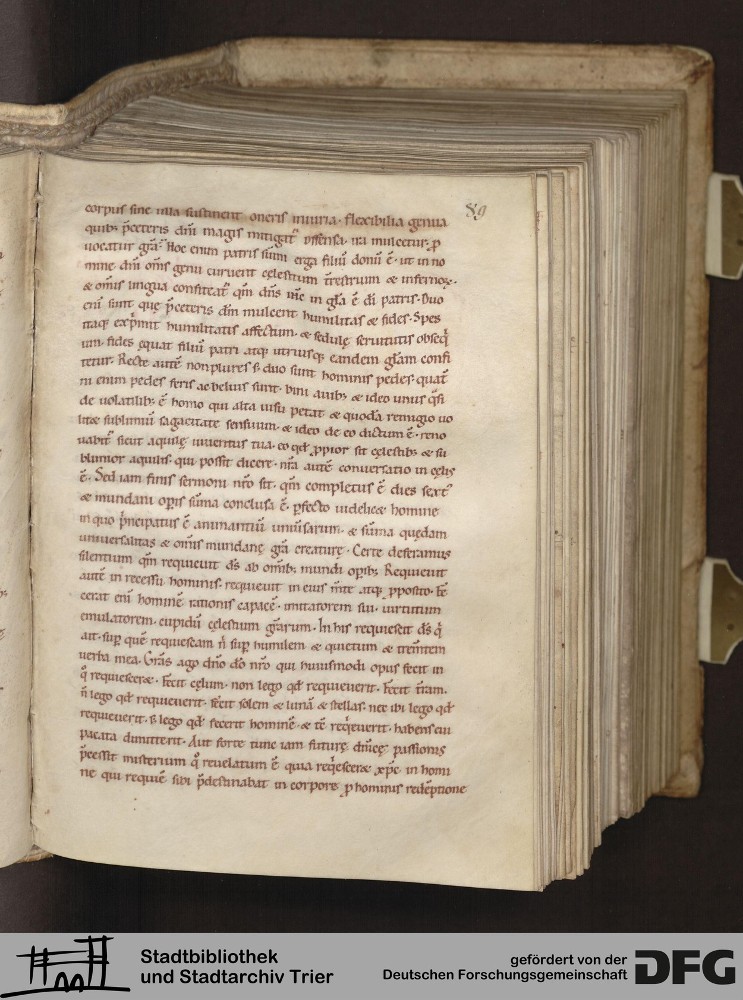 89
corpus sine ulla sustinent oneris iniuria. flexibilia genua
quib; p̄ceteris dn̄i magis mitigat᷒ offensa. ira mulcetur. p
uocatur grā. Hoc enim patris sūmi erga filiū donū ē. ut in no
mine dn̄i om̄s genu curuent cęlestium t̄restrium & infernoꝝ.
& om̄is lingua confiteat᷒ qm̄ dn̄s ih̄c in gl̄a ē dī patris. Duo
enī sunt quę p̄ceteris dn̄m mulcent humilitas & fides. Spes
itaq; exp̄mit humilitatis affectum. & sedulę seruitutis obseq̄
um. fides ęquat filiū patri atq; utriusq; eandem gl̄am confi
tetur. Recte autē non plures s; duo sunt hominis pedes. quat̄
ni enim pedes feris ac beluis sunt. bini auib; & ideo unus q̄si
de uolatilib; ē homo qui alta uisu petat & quodā remigio uo
litæ sublimiū sagacitate sensuum. & ideo de eo dictum ē. reno
uabit᷒ sicut aquilę iuuentus tua. eo qđ ꝓpior sit cęlestib; & su
blimior aquilis. qui possit dicere. nr̄a autē conuersatio in cęlis
ē. Sed iam finis sermoni nr̄o sit. qm̄ completus ē dies sext᷒
& mundani opis sūma conclusa ē. ꝑfecto uidelic& homine
in quo p̄ncipatus ē animantiū uniūsarum. & sūma quędam
uniuersitatis & omis mundanę gr̄a creaturę. Certe deferamus
silentium qm̄ requieuit dš ab om̄ib; mundi opib; Requieuit
autē in recessu hominis. requieuit in eius m̄te atq; ꝓposito. fe
cerat enī hominē rationis capacē. imitatorem sui. uirtutum
emulatorem. cupidū cęlestium gr̄arum. In his requiescit dš q̄
ait. sup quē requiescam n̄ sup humilem & quietum & trem̄tem
uerba mea. Gr̄as ago dn̄o dō nr̄o qui huiusmodi opus fecit in
q̊ requiescer&. Fecit cęlum. non lego qđ requieuerit. Fecit t̄ram.
n̄ lego qđ requieuerit. fecit solem & lunā & stellas. nec ibi lego qđ
requieuerit. s; lego qđ fecerit hominē. & tc̄ reqeuerit. habens cui
pacata dimitterit. Aut forte tunc iam futurę dn̄icę passionis
p̄cessit misterium q̊ reuelatum ē quia reqescer& xp̄c in homi
ne qui requiē sibi p̄destinabat in corpore ꝓ hominis redēptione
Stadtbibliothek
und Stadtarchiv Trier
gefördert von der
Deutschen Forschungsgemeinschaft
DFG